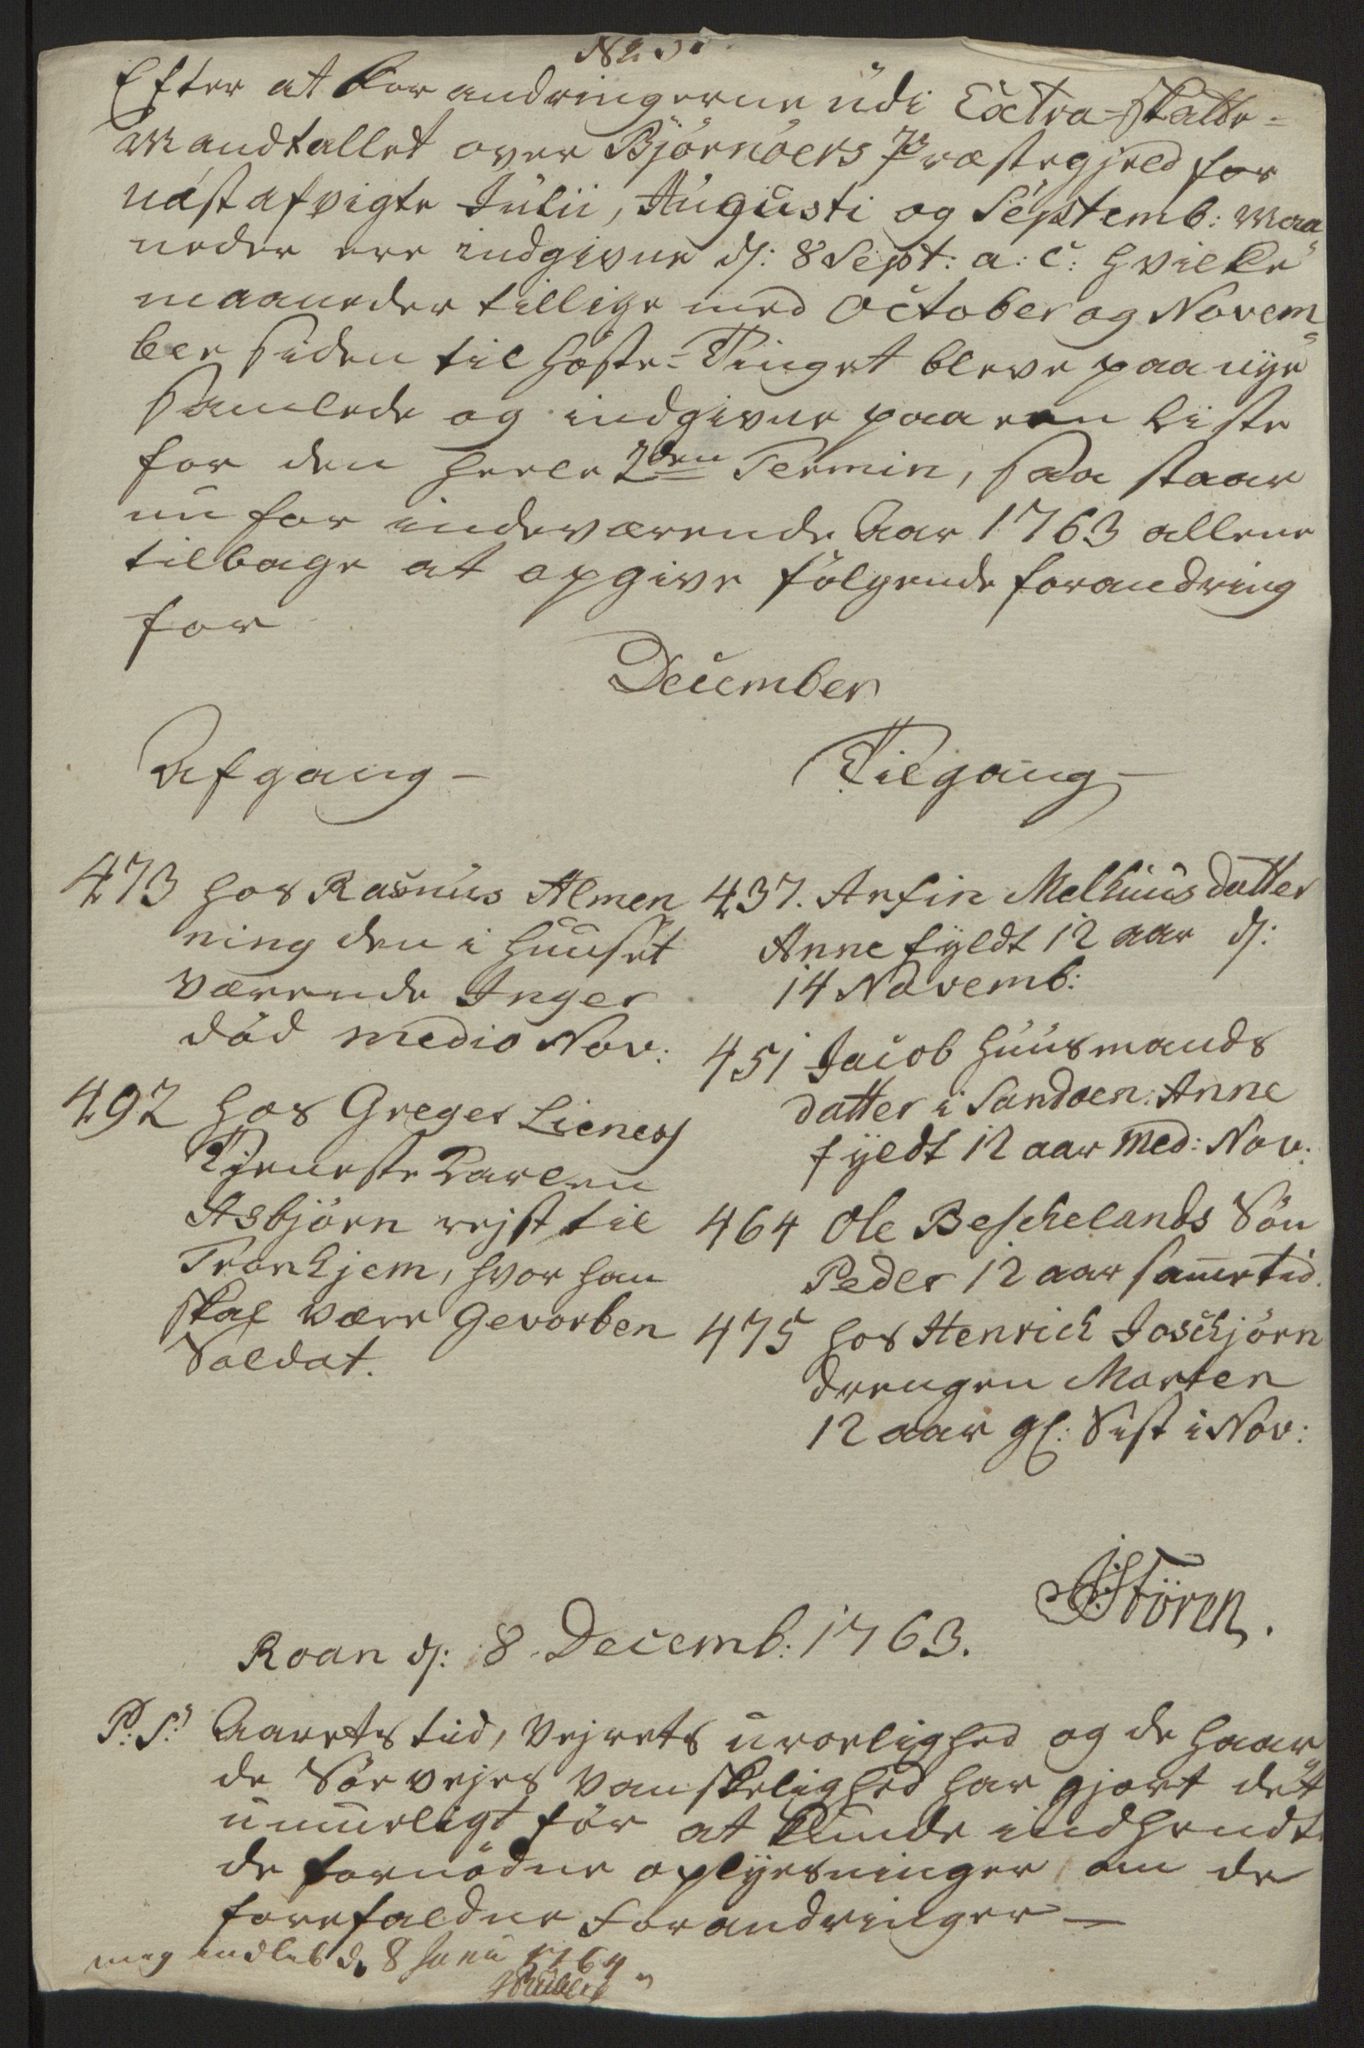 Efter at forandringerne udi Extra-Skatte-
Mandtallet over Björnöers Præstegjeld for
næst afvigte Julii, Augusti og Septemb: Maa
neder ere indgivne d: 8 Sept: a: c: hvilke
maaneder tillige med October og Novem
ber siden til Höste-Tinget bleve paa nye
samlede og indgivne paa een Liste
for den heele 2den Termin, saa staar
nu for indeværende Aar 1763 allene
tilbage at opgive fölgende forandring
for
December
Afgang
473 hos Rasmus Almen
ning den i Huuset
værende Inger
död medio Nov:
492 hos Greger Lienes
Tjeneste Karlen
Asbjörn rejst til
Tronhjem, hvor han
skal være Gevorben
Soldat.
Tilgang
437. Arfin Melhuus datter
Anne fyldt 12 aar d:
14 Novemb:
451 Jacob Huusmands
datter i Sandöen: Anne
fyldt 12 aar med: Nov:
464 Ole Beskelands Sön
Peder 12 aar samme tid.
475 hos Henrich Joschjörn
drengen Morten
12 aar gl: Sist i Nov:
Stören.
Roan d: 8 Decemb: 1763.
P: S: Aarets tiid, Vejrets uroelighed og de haar
de Söe vejes Vanskelighed har gjort det
umueligt för at kunde indhendte
de fornödne oplyesninger om de
forefaldne forandringer
mig indleb d. 8 Janu 1764